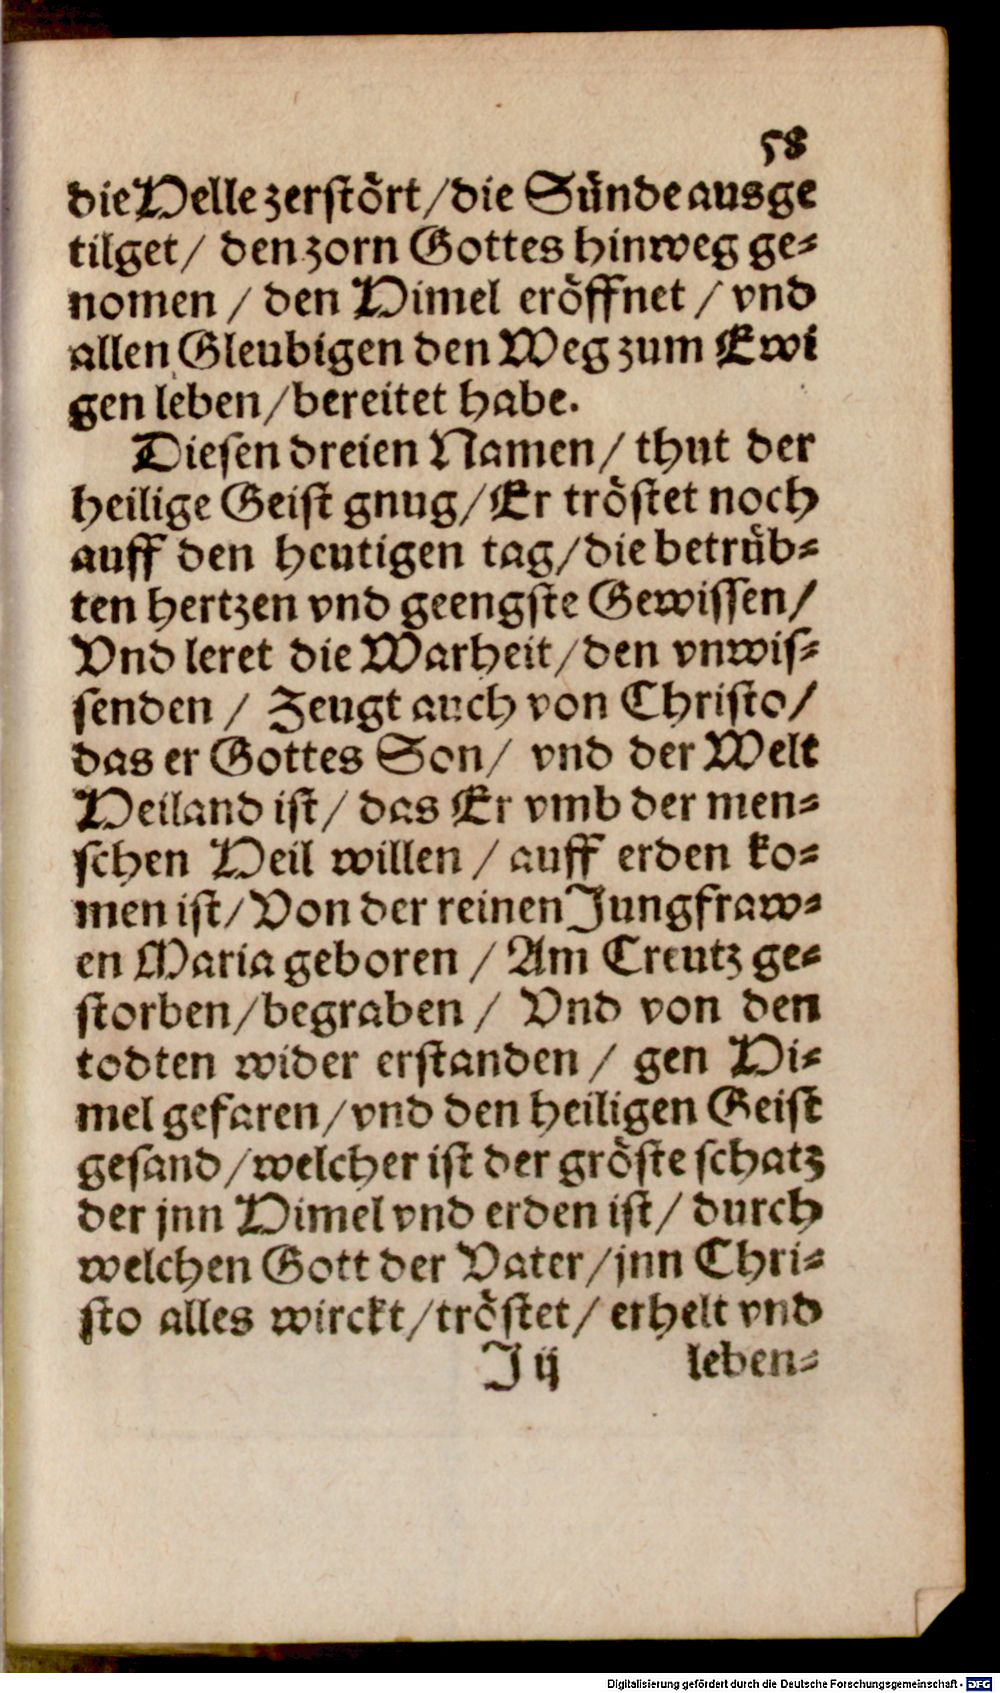 58
die Helle zerstört/die Sünde ausge
tilget/ den zorn Gottes hinweg ge=
nomen / den Himel eröffnet / vnd
allen Gleubigen den Weg zum Ewi
gen leben/bereitet habe.
Diesen dreien Namen/ thut der
heilige Geist gnug/Er tröstet noch
auff den heutigen tag/die betrüb=
ten hertzen vnd geengste Gewissen/
Vnd leret die Warheit/den vnwis=
senden / Zeugt auch von Christo/
das er Gottes Son/ vnd der Welt
Heiland ist/ das Er vmb der men=
schen Heil willen / auff erden ko=
men ist/Von der reinen Jungfraw=
en Maria geboren / Am Creutz ge=
storben/begraben / Vnd von den
todten wider erstanden / gen Hi=
mel gefaren/vnd den heiligen Geist
gesand/welcher ist der gröste schatz
der jnn Himel vnd erden ist/ durch
welchen Gott der Vater/jnn Chri=
sto alles wirckt/tröstet/ erhelt vnd
J ij leben=
Digitalisierung gefördert durch die Deutsche Forschungsgemeinschaft - DFG